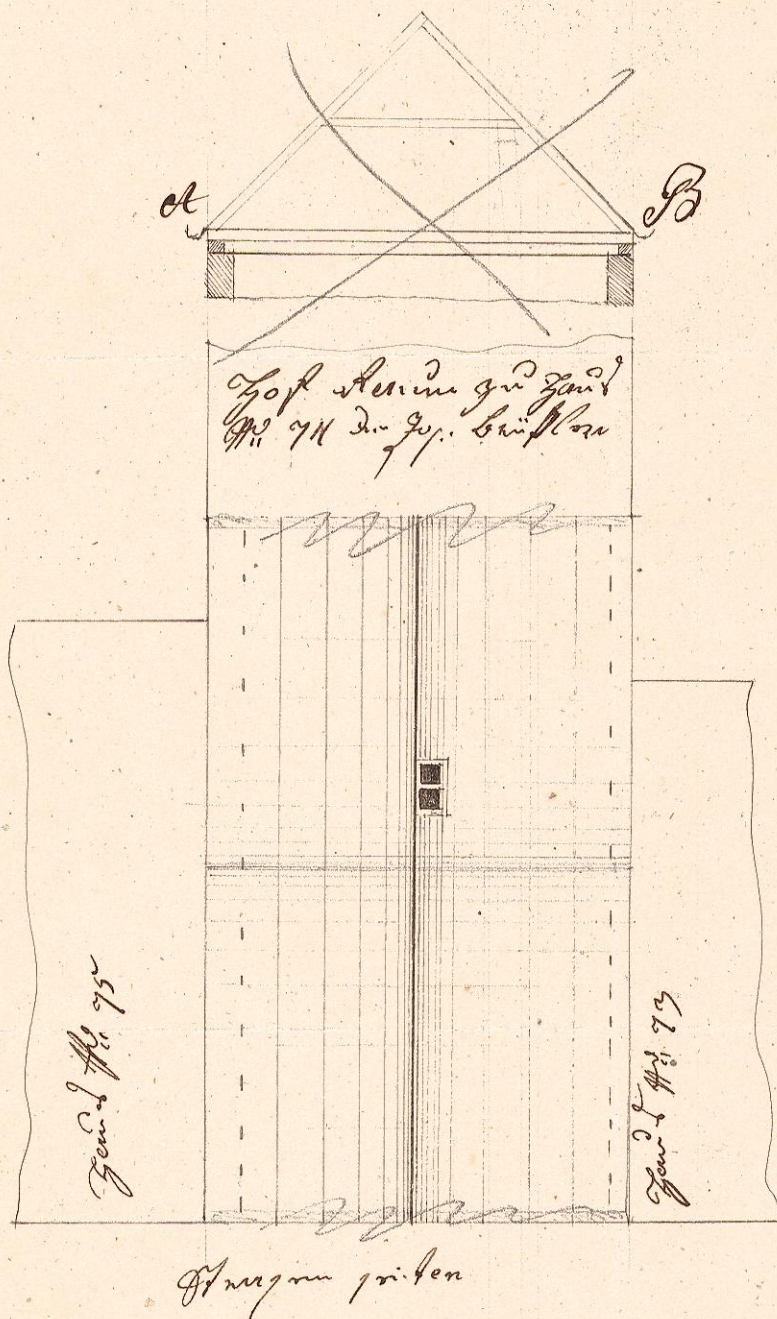 A
B
Hof Raum zu Haus
No 74 des Jos.
Haus No 75
Haus No 73
Strassen seiten